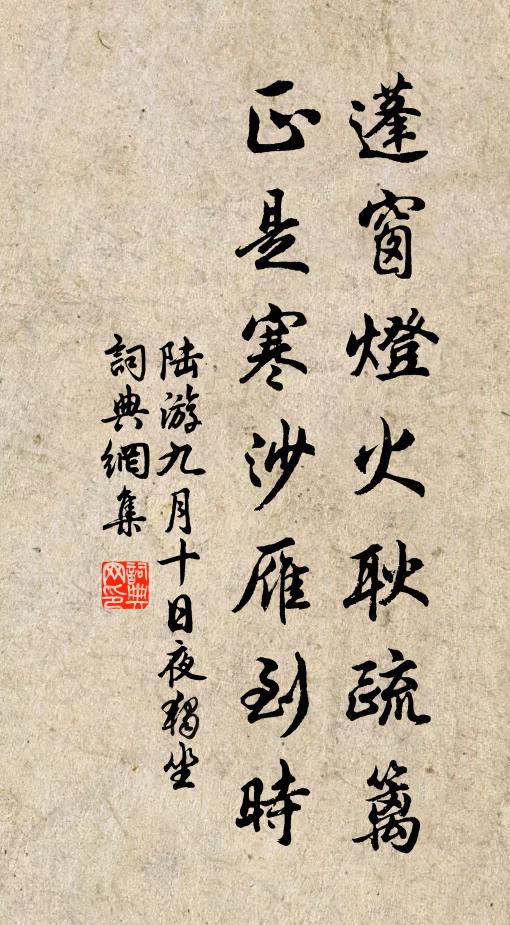 蓬窗燈火耿疏籬
正是寒沙雁到時
陸游九月十日夜獨坐
詞典網集
詞典
网印